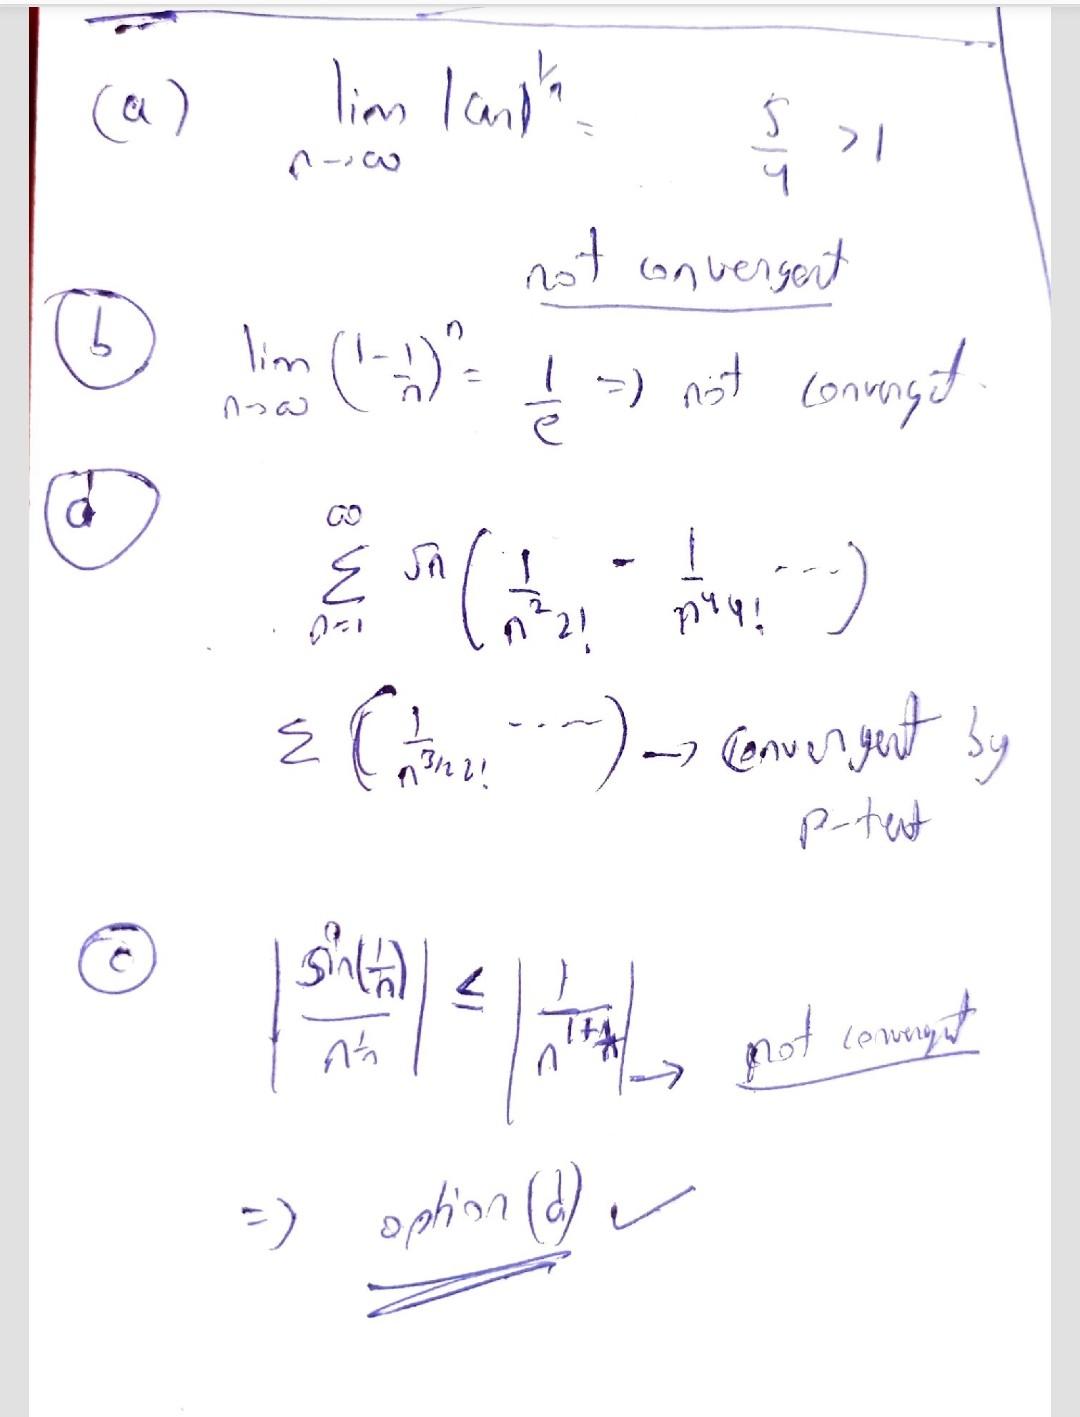 (a) lim n→∞ |an|^1/n = 5/4 >1
not convergent
(b) lim n→∞ (1-1/n)^n = 1/e => not convergt.
(d) ∞ Σ n=1 √n (1/n²2! - 1/n⁴4! ----)
Σ (1/n^3/2 2! ----) → convergent by
p-test
(c) |sin(1/n)/n^1/n| ≤ |1/n^1+1/n| → not convergt
=> option (d) ✓